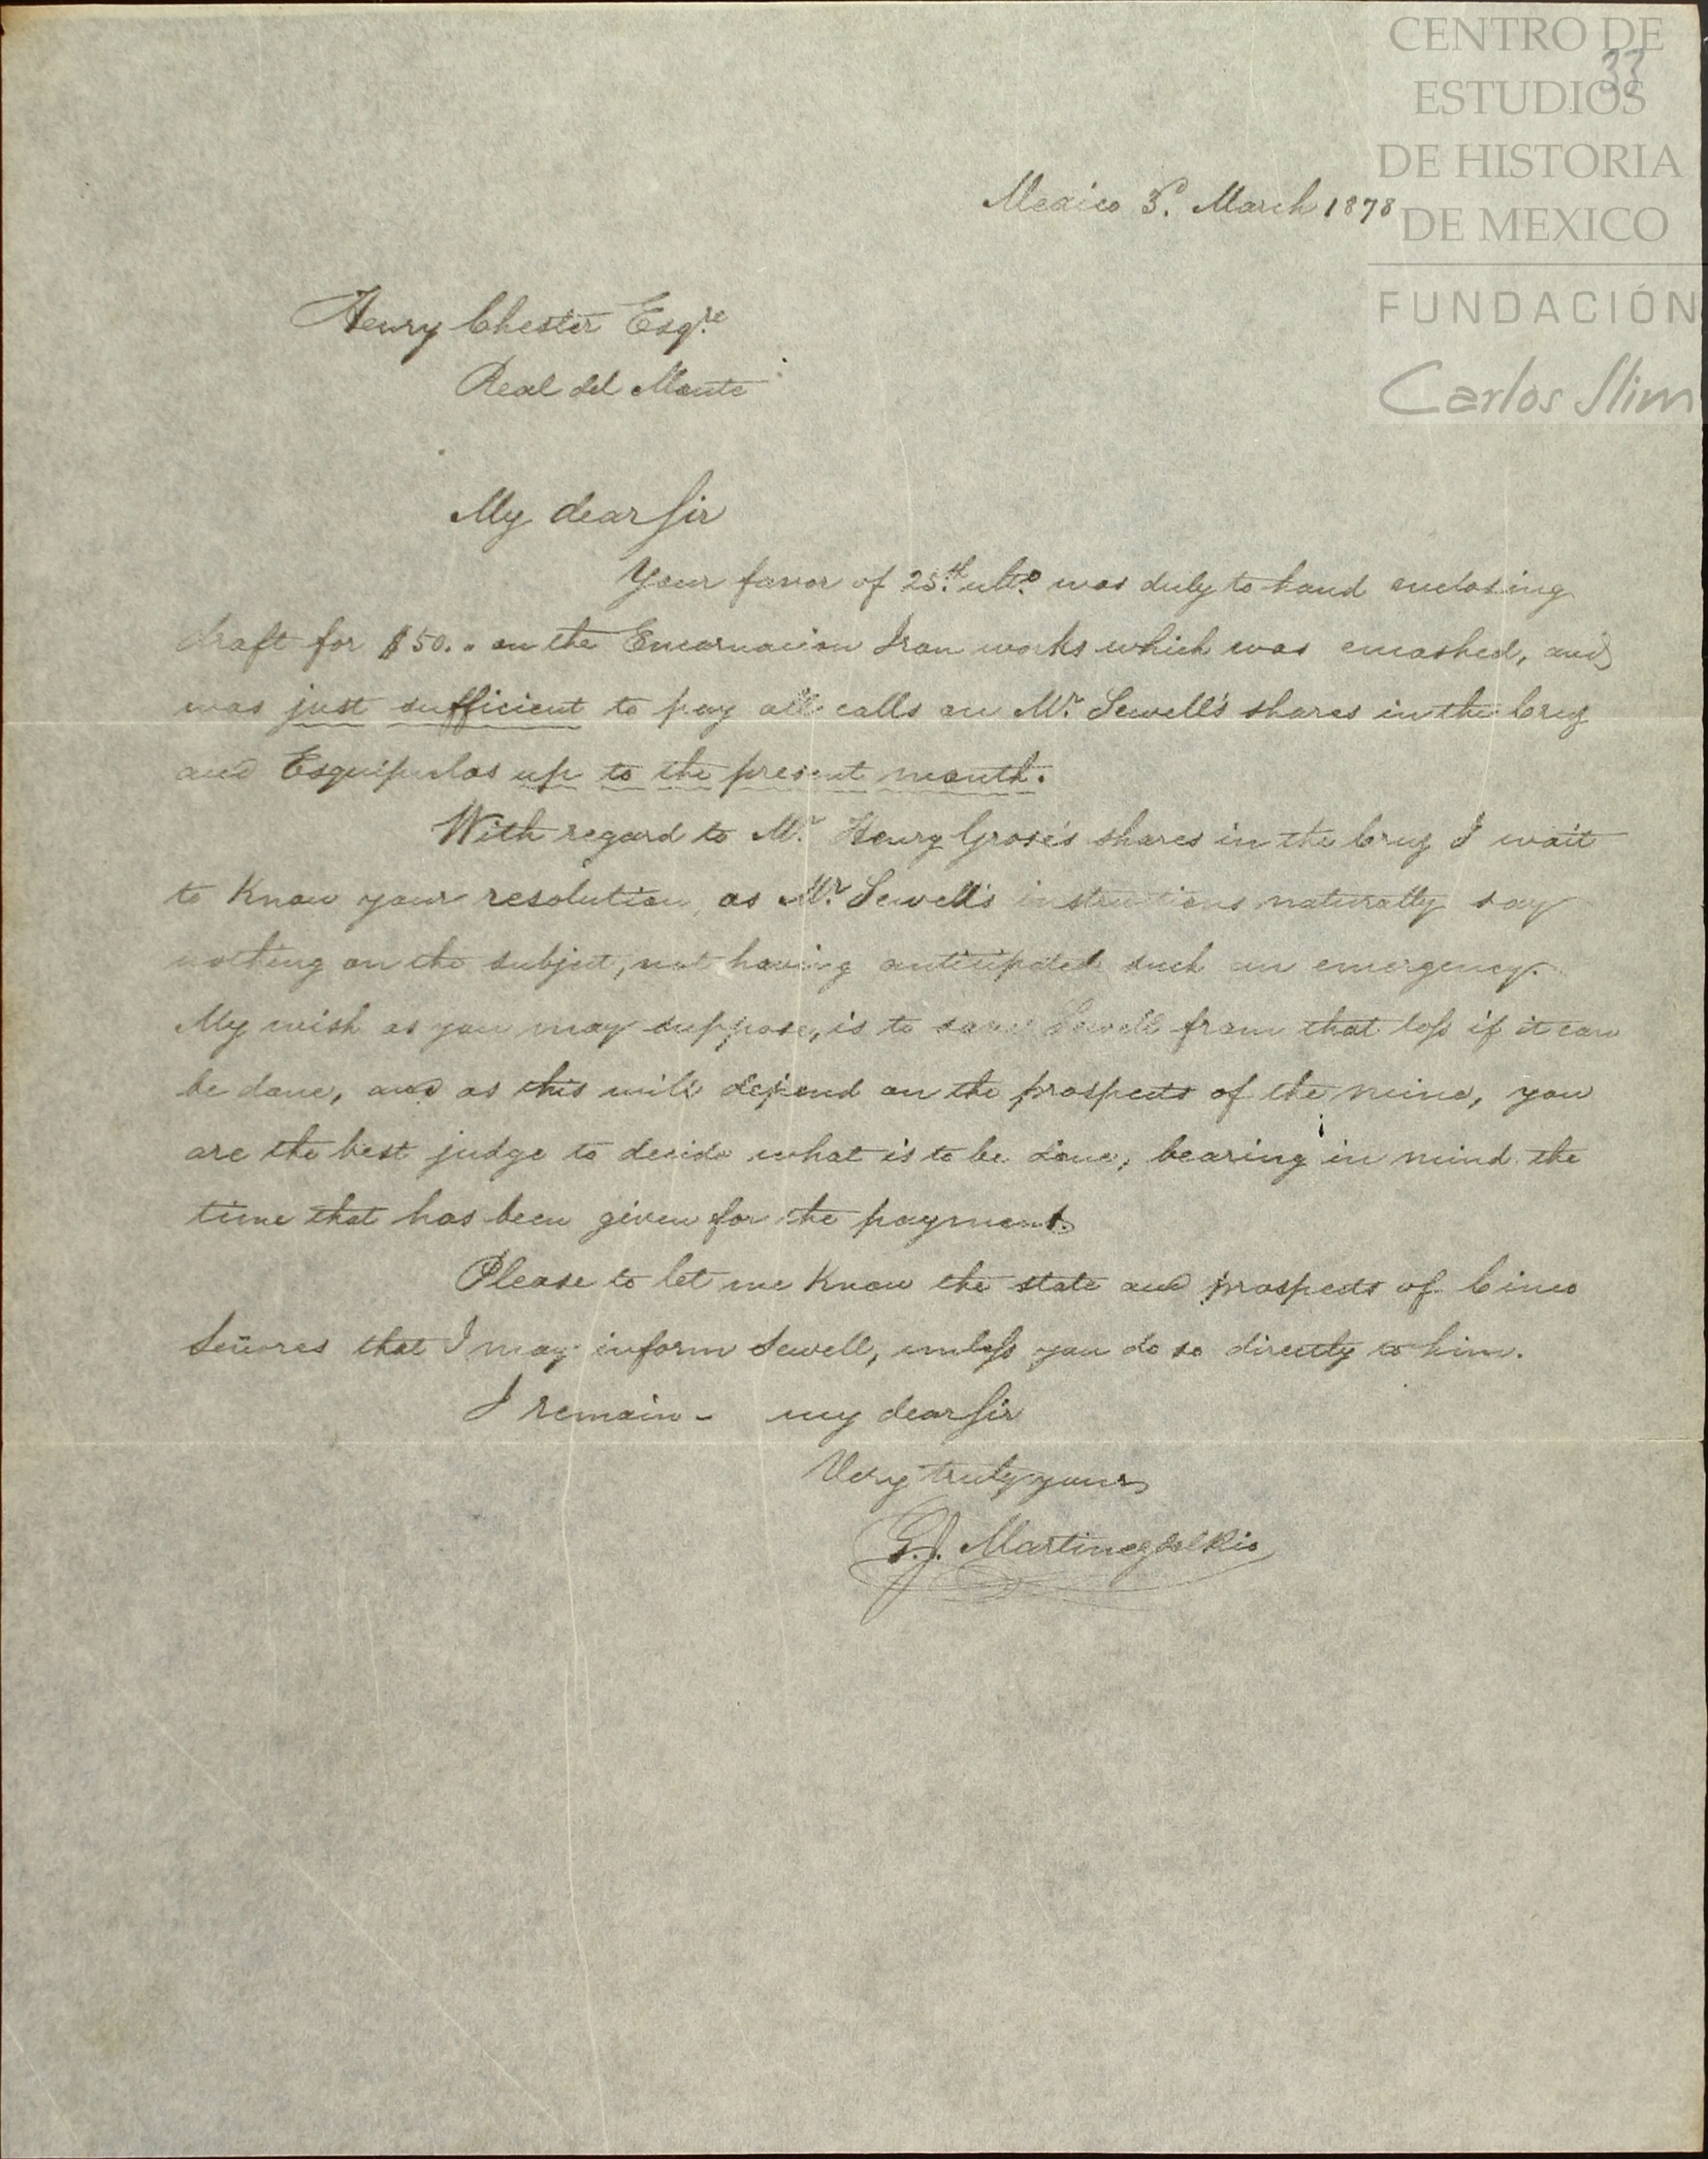 CENTRO DE
ESTUDIOS
DE HISTORIA
DE MEXICO
FUNDACIÓN
Carlos Slim
33
Mexico 3d. March 1878
Henry Chester Esqre
Real del Monte
My dear Sir
Your favor of 25th. ulto. was duly to hand enclosing
draft for $50.. on the Encarnacion Iron works which was encashed, and
was just sufficient to pay all calls on Mr. Sewell's shares in the Cruz
and Esquipulas up to the present month.
With regard to Mr. Henry Grose's shares in the Cruz I wait
to know your resolution, as Mr. Sewell's instructions naturally say
nothing on the subject, not having anticipated such an emergency.
My wish as you may suppose, is to save Sewell from that loss if it can
be done, and as this will depend on the prospects of the mine, you
are the best judge to decide what is to be done, bearing in mind the
time that has been given for the payment.
Please to let me know the state and prospects of Cinco
Señores that I may inform Sewell, unless you do so directly to him.
I remain - my dear Sir
Very truly yours
G. J. Martinez del Rio